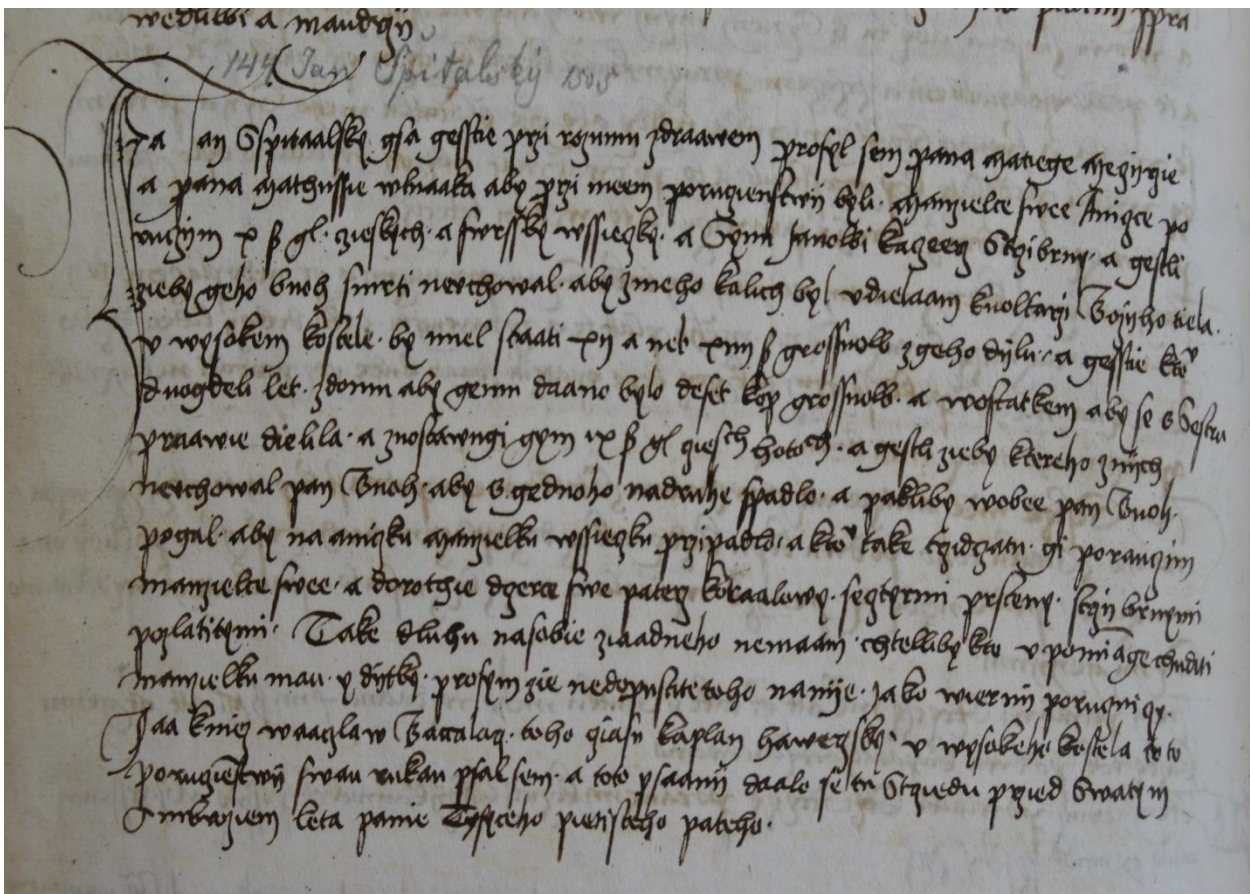 wedukki a maudrzij
144 Jan Špitalský 1505
Ja Jan Sspitaalsky gsa gesstie przi rozumu zdraawem prosyl sem pana Matiege
a pana Mathussie wlnaarze aby przi meem poruczienstwij byli. Manzielce swee Anicze po
ruczym x ß gl. czieskych. a swrssky wssieczky. a Synu Janowi stzibrny. a gestli
zieby geho buoh smrti neuchowal. aby zmeho kalich byl vdielaan kuoltarzi Bozijho tiela.
v wysokem kostele. by miel staati xij a neb xiiij ß grossuow zgeho dijlu. a gesstie
dwogdeli let. zdomu aby gemu daano bylo deset kop grossuow. a wostatkem aby se s Sestru
praawie dielila. a znostawugi gym ix ß gl. a gestli zieby ktereho znijch
neuchowal pan Buoh. aby s gednoho nadruhe spadlo. a pakliby wobee pan Buoh
pogal. aby na aniczku Manzielku wssieczku przipadlo. take gi poruczim
manzielce swee. a dorothie dczerce swe paterz koraalowy. seczterzmi prsteny. stzijbrnymi
pozlatitymi. Take dluhu nasobie ziaadneho nemaam. chtelliby kto v pominage
manzielku mau. y dijtky. prosym zie nedopustite toho nanije. jako wiernij poruczniczy.
Jaa kniez waaczlaw toho cziasu kaplan v wysokeho kostela toto
poruczienstwij swau rukau psal sem. a toto psaanij daalo se tu Strziedu przied Swatym
Ambroziem leta panie Tysyceho pietisteho pateho.